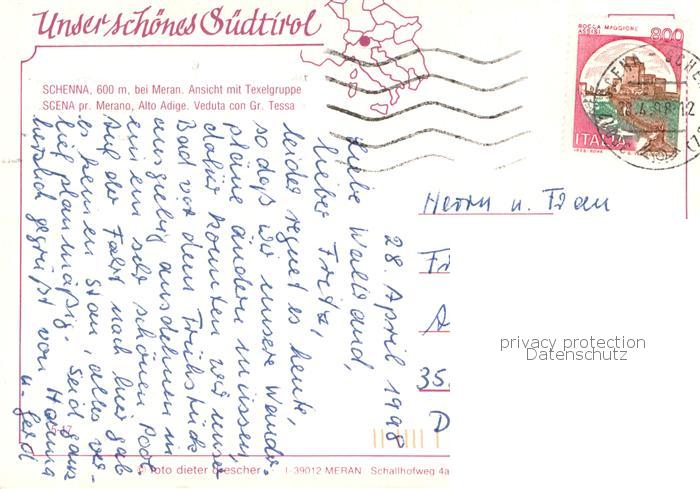 Unser schönes Südtirol
SCHENNA, 600 m, bei Meran. Ansicht mit Texelgruppe
SCENA pr. Merano, Alto Adige. Veduta con Gr. Tessa
ROCCA MAGGIORE
ASSISI
800
ITALIA
28. April 1998
Liebe Waltraud,
lieber Fritz,
leider regnet es heute,
so daß wir unsere Wander-
pläne ändern müssen,
daher konnten wir unser
Bad vor dem Frühstück
ausgiebig ausdehnen in
einem sehr schönen Pool.
Auf der Fahrt nach hier gab
es keinen Stau, alles ver-
lief planmäßig. Seid ganz
herzlich gegrüßt von Hanna
u. Gerdi
Herrn u. Frau
Fr
A
35
D
privacy protection
Datenschutz
© foto dieter drescher I-39012 MERAN Schallhofweg 4a